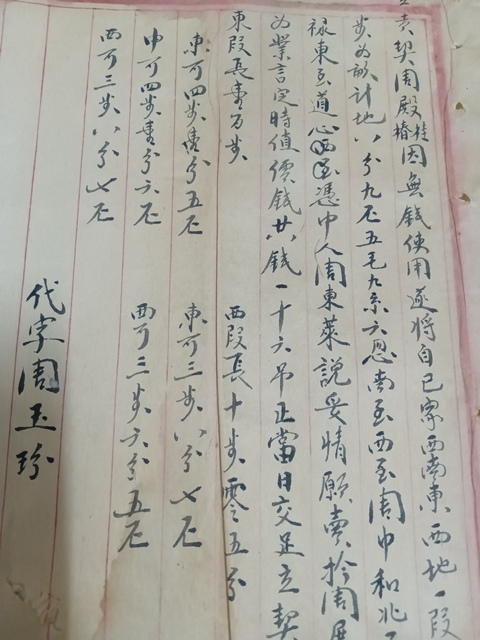 賣契周殿桂椿因無錢使用遂將自己家西南東西地一段
步為畝計地八分九厘五毛九系六忽南至西至周中和北
祿東至道心西至憑中人周東萊說妥情願賣於周
為業言定時值價錢廿八錢一十六吊正當日交足立契
東段長壹万步 西段長十步零五分
東可四步壹分五厘 東可三步八分七厘
中可四步壹分六厘 西可三步六分五厘
西可三步八分七厘
代字周玉珍